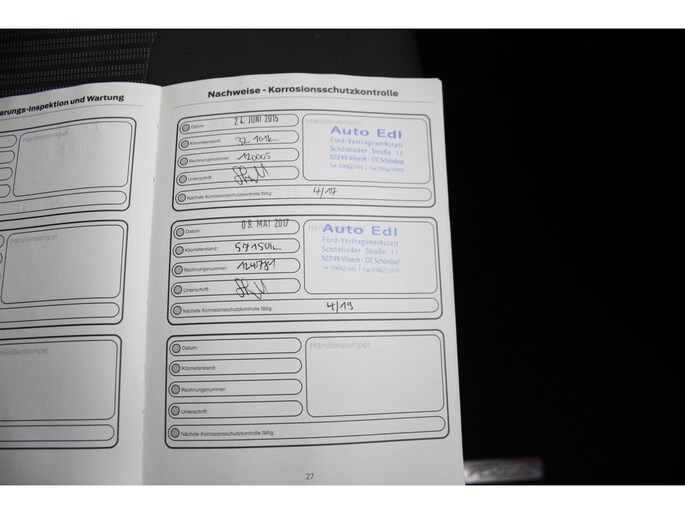 erungs-Inspektion und Wartung
Händlerstempel
Nachweise - Korrosionsschutzkontrolle
Datum: 24. JUNI 2015
Kilometerstand:
Rechnungsnummer: 120005
Unterschrift:
Nächste Korrosionsschutzkontrolle fällig: 4/17
Auto Edl
Ford-Vertragswerkstatt
Schönlinder Straße 11
92249 Vilseck - OT Schönlind
Datum: 09. MAI 2017
Kilometerstand:
Rechnungsnummer: 124781
Unterschrift:
Nächste Korrosionsschutzkontrolle fällig: 4/19
Auto Edl
Ford-Vertragswerkstatt
Schönlinder Straße 11
92249 Vilseck - OT Schönlind
Datum:
Kilometerstand:
Rechnungsnummer:
Unterschrift:
Nächste Korrosionsschutzkontrolle fällig:
Händlerstempel
27